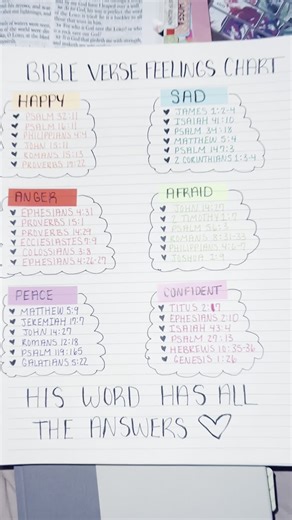 BIBLE VERSE FEELINGS CHART
HAPPY
PSALM 32:11
PSALM 16:11
PHILIPPIANS 4:4
JOHN 15:11
ROMANS 15:13
PROVERBS 17:22
SAD
JAMES 1:2-4
ISAIAH 41:10
PSALM 34:18
MATTHEW 5:4
PSALM 147:3
2 CORINTHIANS 1:3-4
ANGER
EPHESIANS 4:31
PROVERBS 15:1
PROVERBS 14:29
ECCLESIASTES 7:9
COLOSSIANS 3:8
EPHESIANS 4:26-27
AFRAID
JOHN 14:27
2 TIMOTHY 1:7
PSALM 56:3
ROMANS
PHILIPPIANS 4:6-7
JOSHUA 1:9
PEACE
MATTHEW 5:9
JEREMIAH 17:7
JOHN 14:27
ROMANS 12:18
PSALM 119:165
GALATIANS 5:22
CONFIDENT
TITUS 2:7
EPHESIANS 2:10
ISAIAH 43:4
PSALM 27:13
HEBREWS 10:35-36
GENESIS 1:26
HIS WORD HAS ALL
THE ANSWERS